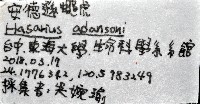 安德遜蠅虎
Hasarius adansoni
台中,東海大學,生命科學系館
2018.03.17
24.1776342, 120.5983249
採集者:吳婉瑜